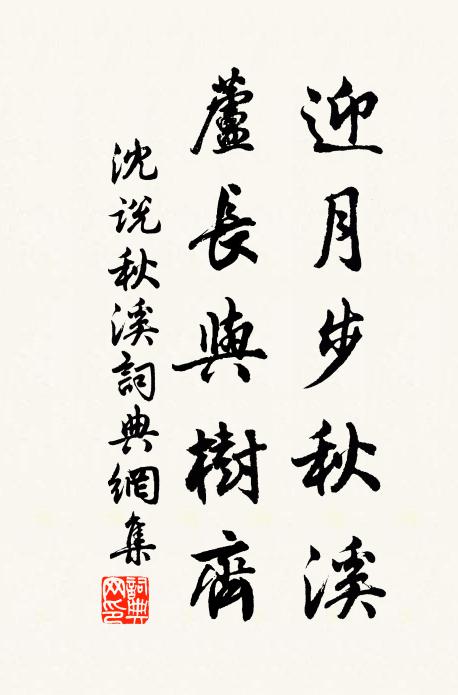 迎月步秋溪
蘆長與樹齊
沈說秋溪詞典網集
詞典网印